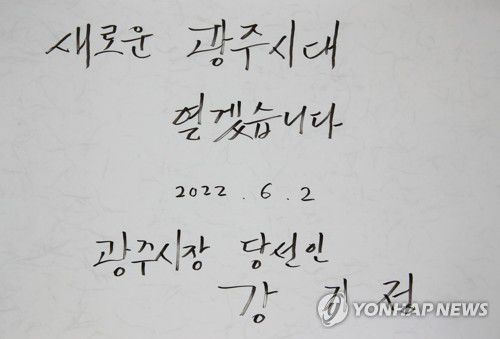 새로운 광주시대
열겠습니다
2022 . 6 . 2
광주시장 당선인
강 기 정
YONHAP NEWS